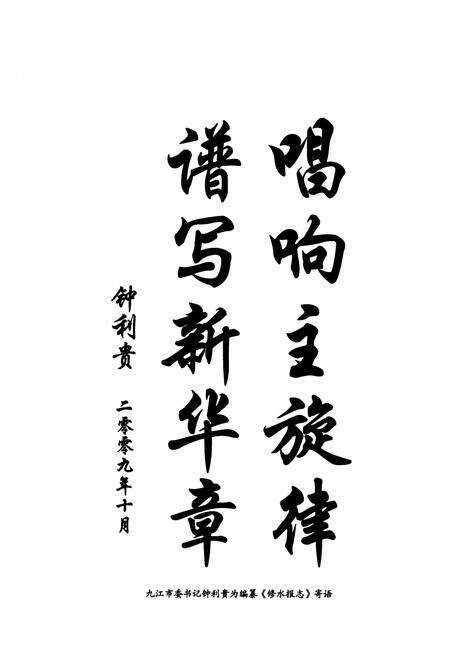 唱响主旋律
谱写新华章
钟利贵 二零零九年十月
九江市委书记钟利贵为编纂《修水报志》寄语